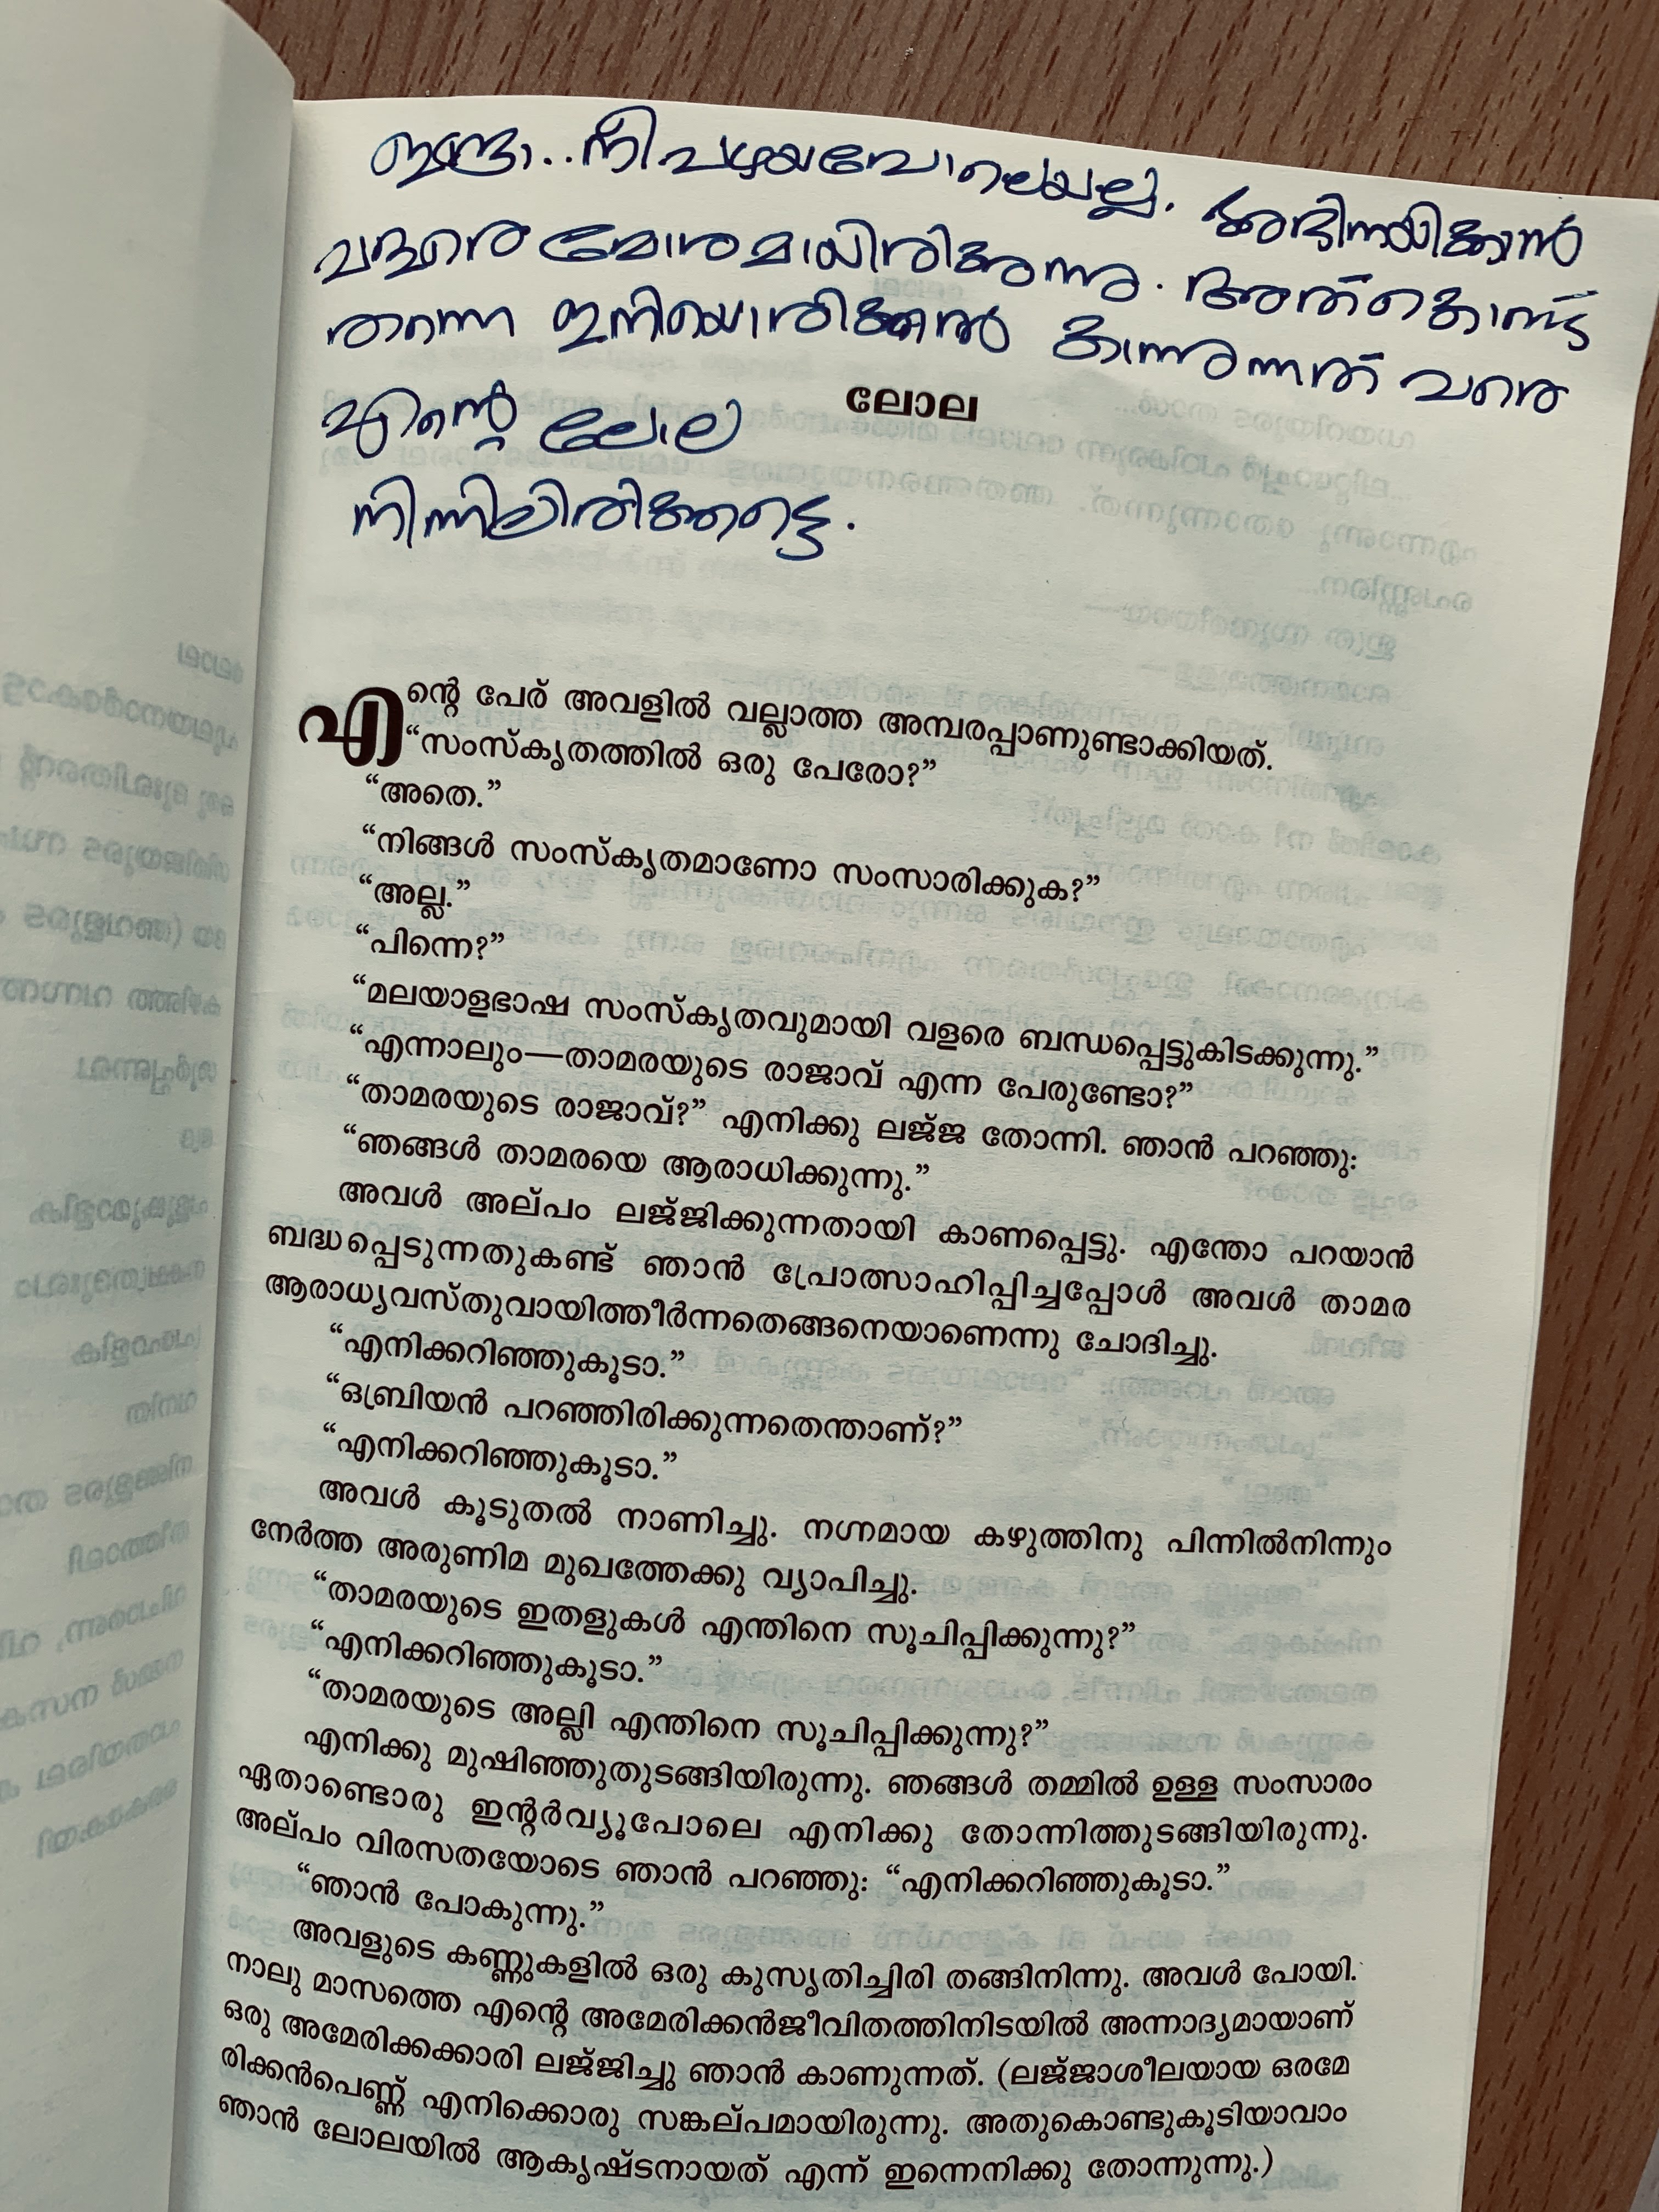 ഇന്ദ്രാ.. നീ പഴയപോലെയല്ല. അഭിനയിക്കാൻ
വളരെ മോശമായിരിക്കുന്നു. അത്കൊണ്ട്
തന്നെ ഇനിയൊരിക്കൽ കാണുന്നത് വരെ
എന്റെ ലോല
നിന്നിലിരിക്കട്ടെ.
ലോല
എന്റെ പേര് അവളിൽ വല്ലാത്ത അമ്പരപ്പാണുണ്ടാക്കിയത്.
“സംസ്കൃതത്തിൽ ഒരു പേരോ?”
“അതെ.”
“നിങ്ങൾ സംസ്കൃതമാണോ സംസാരിക്കുക?”
“അല്ല.”
“പിന്നെ?”
“മലയാളഭാഷ സംസ്കൃതവുമായി വളരെ ബന്ധപ്പെട്ടുകിടക്കുന്നു.”
“എന്നാലും—താമരയുടെ രാജാവ് എന്ന പേരുണ്ടോ?”
“താമരയുടെ രാജാവ്?” എനിക്കു ലജ്ജ തോന്നി. ഞാൻ പറഞ്ഞു:
“ഞങ്ങൾ താമരയെ ആരാധിക്കുന്നു.”
അവൾ അല്പം ലജ്ജിക്കുന്നതായി കാണപ്പെട്ടു. എന്തോ പറയാൻ
ബദ്ധപ്പെടുന്നതുകണ്ട് ഞാൻ പ്രോത്സാഹിപ്പിച്ചപ്പോൾ അവൾ താമര
ആരാധ്യവസ്തുവായിത്തീർന്നതെങ്ങനെയാണെന്നു ചോദിച്ചു.
“എനിക്കറിഞ്ഞുകൂടാ.”
“ഒബ്രിയൻ പറഞ്ഞിരിക്കുന്നതെന്താണ്?”
“എനിക്കറിഞ്ഞുകൂടാ.”
അവൾ കൂടുതൽ നാണിച്ചു. നഗ്നമായ കഴുത്തിനു പിന്നിൽനിന്നും
നേർത്ത അരുണിമ മുഖത്തേക്കു വ്യാപിച്ചു.
“താമരയുടെ ഇതളുകൾ എന്തിനെ സൂചിപ്പിക്കുന്നു?”
“എനിക്കറിഞ്ഞുകൂടാ.”
“താമരയുടെ അല്ലി എന്തിനെ സൂചിപ്പിക്കുന്നു?”
എനിക്കു മുഷിഞ്ഞുതുടങ്ങിയിരുന്നു. ഞങ്ങൾ തമ്മിൽ ഉള്ള സംസാരം
ഏതാണ്ടൊരു ഇന്റർവ്യൂപോലെ എനിക്കു തോന്നിത്തുടങ്ങിയിരുന്നു.
അല്പം വിരസതയോടെ ഞാൻ പറഞ്ഞു: “എനിക്കറിഞ്ഞുകൂടാ.”
“ഞാൻ പോകുന്നു.”
അവളുടെ കണ്ണുകളിൽ ഒരു കുസൃതിച്ചിരി തങ്ങിനിന്നു. അവൾ പോയി.
നാലു മാസത്തെ എന്റെ അമേരിക്കൻജീവിതത്തിനിടയിൽ അന്നാദ്യമായാണ്
ഒരു അമേരിക്കക്കാരി ലജ്ജിച്ചു ഞാൻ കാണുന്നത്. (ലജ്ജാശീലയായ ഒരമേ
രിക്കൻപെണ്ണ് എനിക്കൊരു സങ്കല്പമായിരുന്നു. അതുകൊണ്ടുകൂടിയാവാം
ഞാൻ ലോലയിൽ ആകൃഷ്ടനായത് എന്ന് ഇന്നെനിക്കു തോന്നുന്നു.)